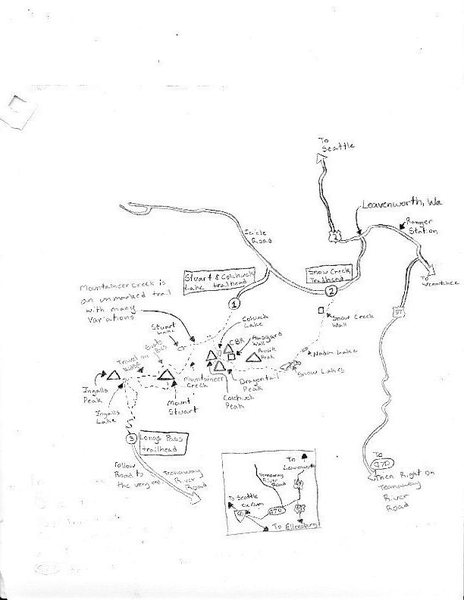 To
Seattle
Leavenworth, Wa
Ranger
Station
2
To
Wenatchee
97
Icicle
Road
Stuart & Colchuck
Lake trailhead
1
Snow Creek
Trailhead
2
Mountaineer Creek is
an unmarked trail
with many
Variations
Stuart
Lake
Colchuck
Lake
Snow Creek
Wall
Nada Lake
Snow Lakes
Dragontail
Peak
Colchuck
Peak
Mountaineer
Creek
Mount
Stuart
Ingalls
Peak
Ingalls
Lake
3
Longs Pass
trailhead
Follow
Road to
the very end
Teanaway
River
Road
To
970
Then Right on
Teanaway
River
Road
To
Leavenworth
Teanaway
River
Road
To Seattle
970
To Ellensburg